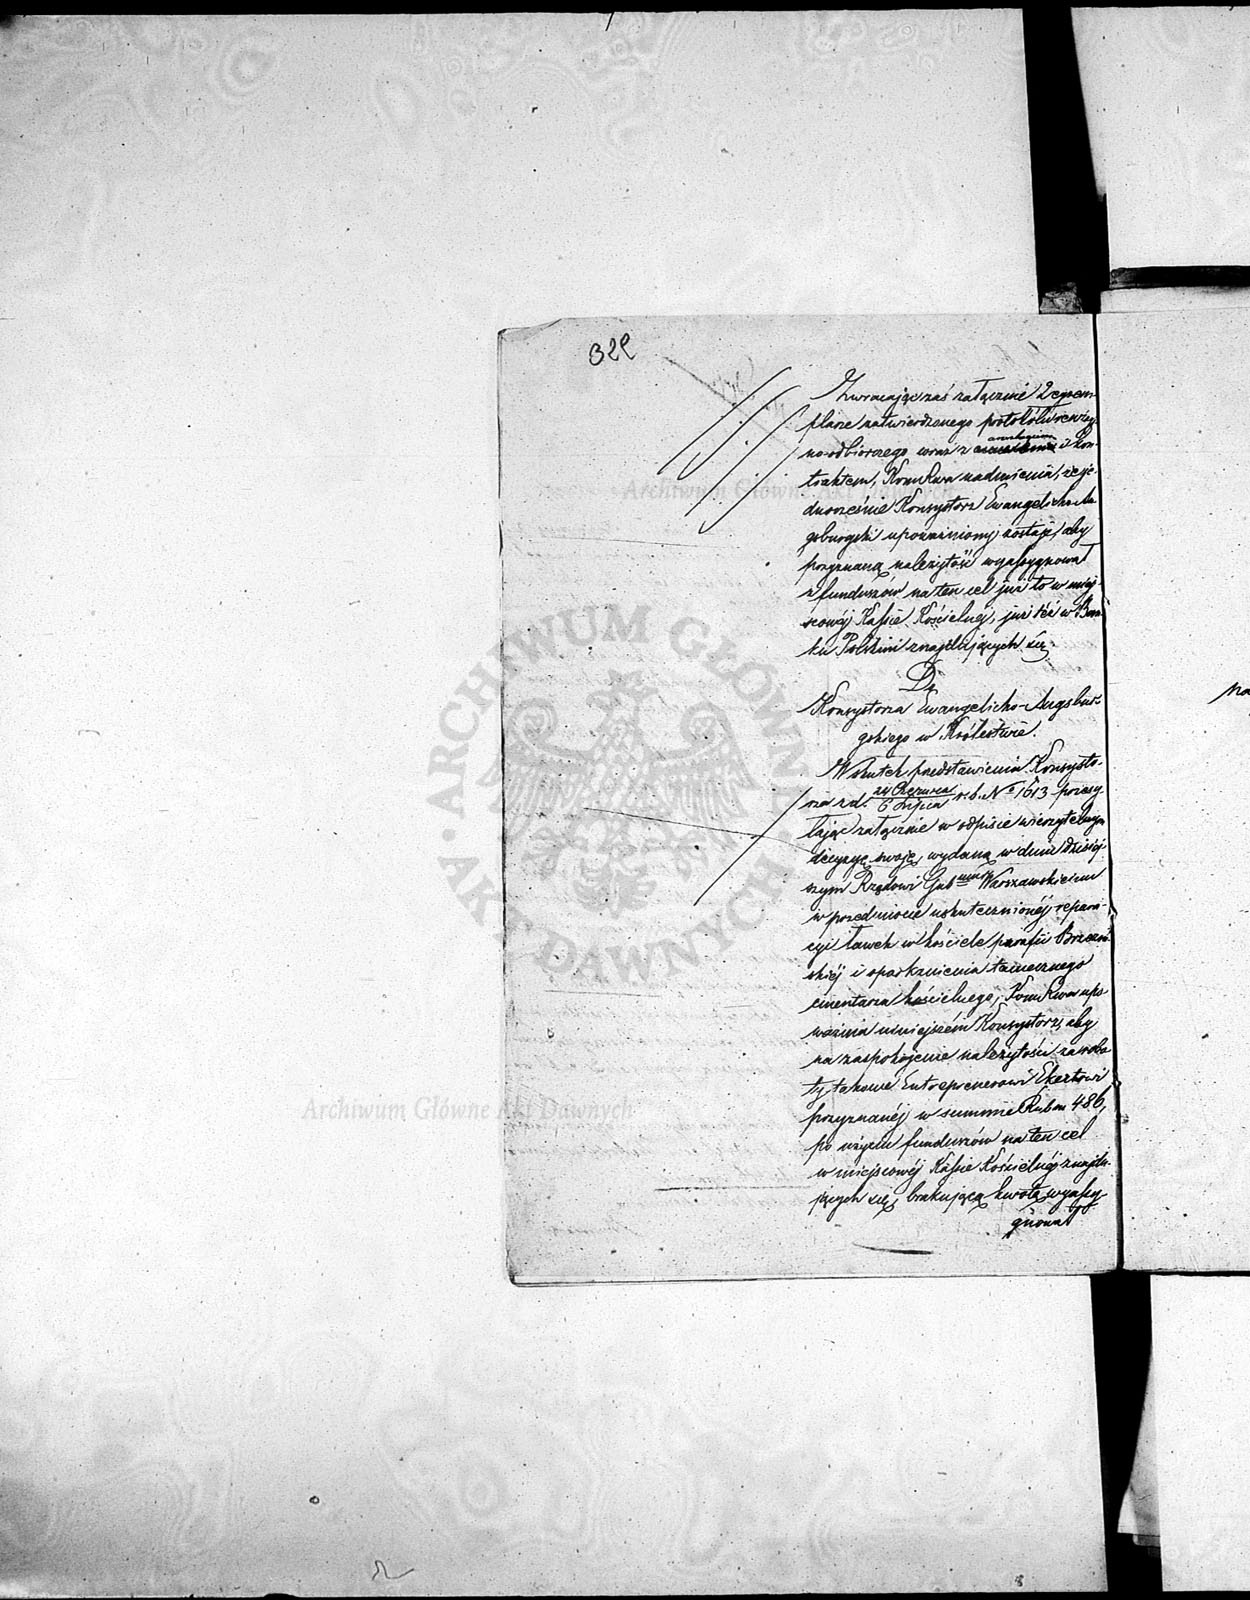 322
Zwracając zaś załącznie 2 egzem-
plarze zatwierdzonego protokółu rewizyj-
no-odbiorczego wraz z anszlagiem i kon-
traktem, Kom Rwa nadmienia, że je-
dnocześnie Konsystorz Ewangelicko-Au-
gsburgski upoważniony zostaje, aby
przyznaną należytość wyassygnował
z funduszów na ten cel już to w miej-
scowéj Kassie Kościelnéj, już téż w Ban-
ku Polskim znajdujących się.
Do
Konsystorza Ewangelicko-Augsbur-
gskiego w Królestwie.
Wskutek przedstawienia Konsysto-
rza z d. 24 Czerwca / 6 Lipca r. b. No 1613 przesy-
łając załącznie w odpisie wierzytelnym
decyzyę swoję, wydaną w dniu dzisiej-
szym Rządowi Gub Warszawskiemu
w przedmiocie uskutecznionéj repara-
cyi ławek w kościele parafii Brzeziń-
skiéj i oparkanienia tamecznego
cmentarza kościelnego, Kom Rwa upo-
ważnia niniejszém Konsystorz, aby
na zaspokojenie należytości za robo-
ty takowe Entreprenerowi Ekertowi
przyznanéj w summie Rubsr 486,
po użyciu funduszów na ten cel
w miejscowéj Kassie Kościelnéj znajdu-
jących się, brakującą kwotę wyassy-
gnował
Archiwum Główne Akt Dawnych
ARCHIWUM GŁÓWNE AKT DAWNYCH
Archiwum Główne Akt Dawnych